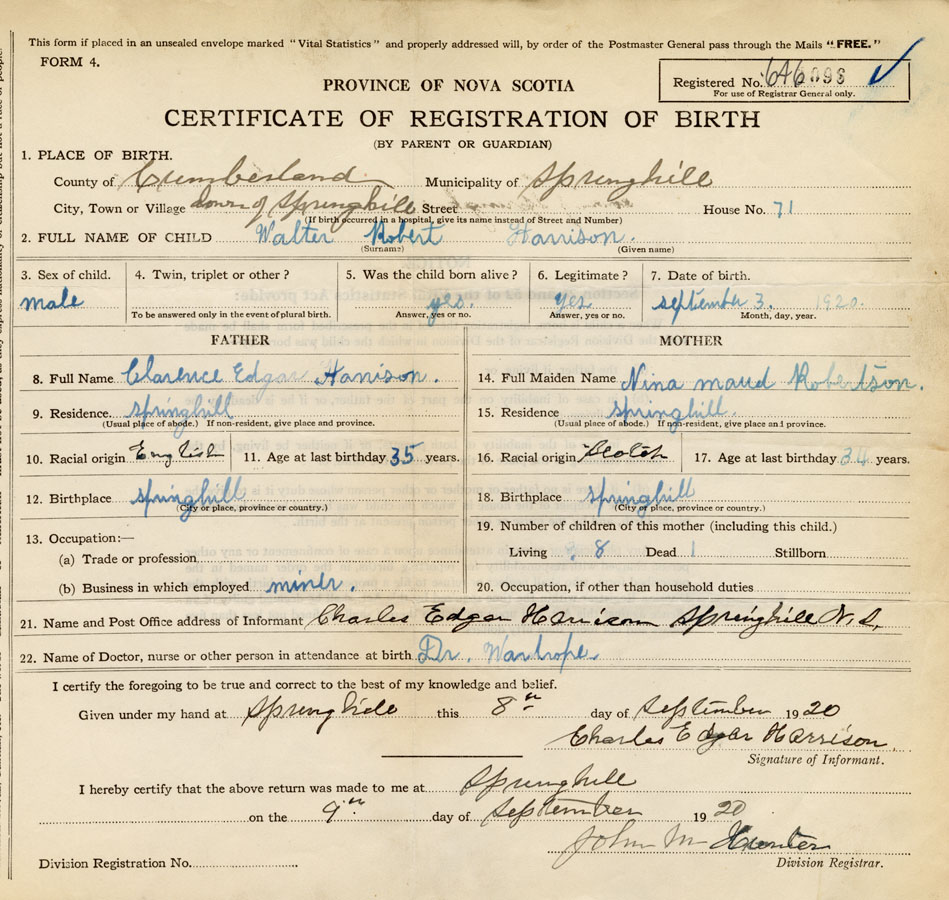 This form if placed in an unsealed envelope marked "Vital Statistics" and properly addressed will, by order of the Postmaster General pass through the Mails "FREE."
FORM 4.
Registered No. 646
For use of Registrar General only.
PROVINCE OF NOVA SCOTIA
CERTIFICATE OF REGISTRATION OF BIRTH
(BY PARENT OR GUARDIAN)
1. PLACE OF BIRTH.
County of Cumberland Municipality of Springhill
City, Town or Village Town of Springhill Street House No. 71
(If birth occurred in a hospital, give its name instead of Street and Number)
2. FULL NAME OF CHILD Walter Robert Harrison.
(Surname) (Given name)
3. Sex of child. 4. Twin, triplet or other? 5. Was the child born alive? 6. Legitimate? 7. Date of birth.
male yes. Yes September 3. 1920.
To be answered only in the event of plural birth. Answer, yes or no. Answer, yes or no. Month, day, year.
FATHER MOTHER
8. Full Name Clarence Edgar Harrison. 14. Full Maiden Name Nina maud Robertson.
9. Residence. Springhill 15. Residence springhill.
(Usual place of abode.) If non-resident, give place and province. (Usual place of abode.) If non-resident, give place and province.
10. Racial origin English 11. Age at last birthday 35 years. 16. Racial origin Scotch 17. Age at last birthday 34 years.
12. Birthplace springhill 18. Birthplace springhill
(City or place, province or country.) (City or place, province or country.)
13. Occupation:— 19. Number of children of this mother (including this child.)
(a) Trade or profession Living 8 Dead 1 Stillborn
(b) Business in which employed miner. 20. Occupation, if other than household duties
21. Name and Post Office address of Informant Charles Edgar Harrison Springhill N.S.
22. Name of Doctor, nurse or other person in attendance at birth Dr. Wardrope
I certify the foregoing to be true and correct to the best of my knowledge and belief.
Given under my hand at Springhill this 8th day of September 1920
Charles Edgar Harrison
Signature of Informant.
I hereby certify that the above return was made to me at Springhill
on the 9th day of September 1920
John M Hunter
Division Registration No. Division Registrar.